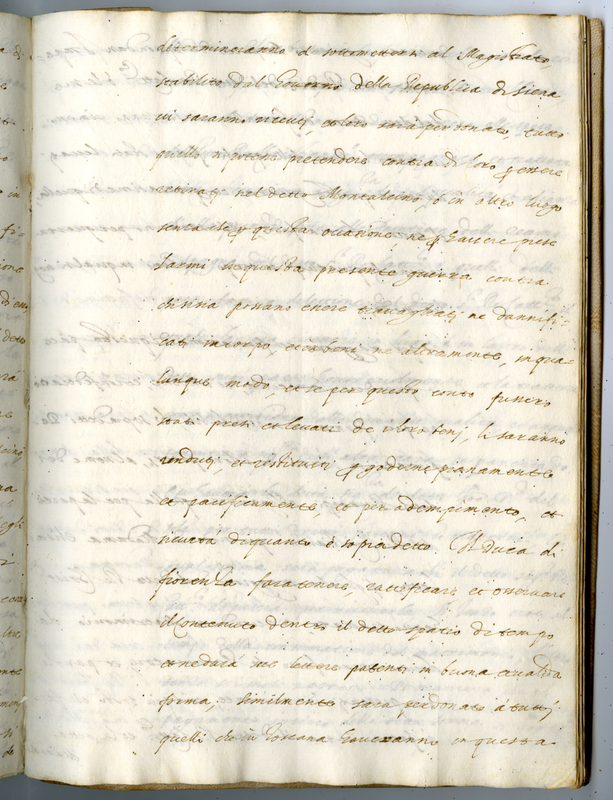 determineranno di sottomettersi al Magistrato
stabilito dal Governo della Republica di Siena
vi saranno ricevuti, et loro sarà perdonato, tutto
quello si potesse pretendere contra di loro p essere
retirati nel detto Montalcino, ò in altro luogo
senza che p questa occasione, ne p havere prese
l'armi in questa presente guerra contra
di Siena possano essere travagliati, ne dannifi-
cati in corpo et in beni, ne altramente, in qua-
lunque modo, et se per questo conto fussero
stati presi et levati de i loro beni, li saranno
renduti, et restituiti p goderne pianamente
et pacificamente, et per adempimento, et
sicurtà di quanto è sopradetto Il Duca di
fiorenza farà tenere, ratificare et osservare
il Contenuto dentro il detto spatio di tempo
et ne darà sue lettere patenti in buona et valida
forma. Similmente sarà perdonato à tutti
quelli che in Toscana haveranno in questa